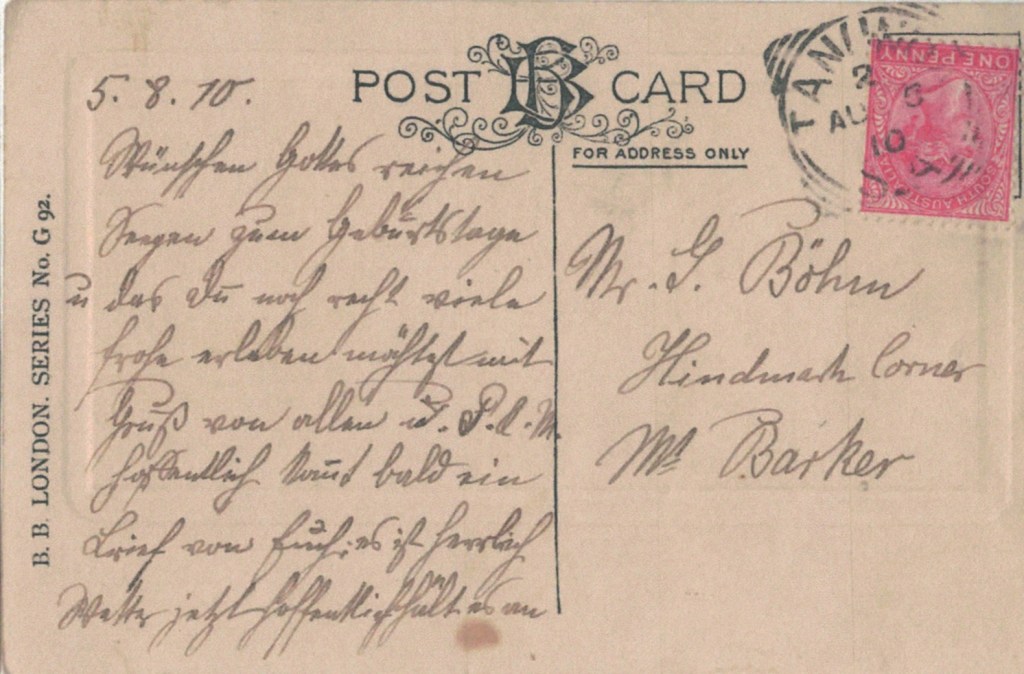 POST CARD
FOR ADDRESS ONLY
B. B. LONDON. SERIES No. G 92.
5. 8. 10.
Wünschen Gottes reichen
Seegen zum Geburtstage
u das Du noch recht viele
frohe erleben möchtest mit
Gruß von allen u. P. A. M.
hoffentlich kommt bald ein
Brief von Euch. es ist herrlich
Wetter jetzt hoffentlich hält es an
Mr. G. Böhm
Hindmarsh Corner
Mt Barker
ONE PENNY
SOUTH AUSTRALIA
TANU
AU 5
10